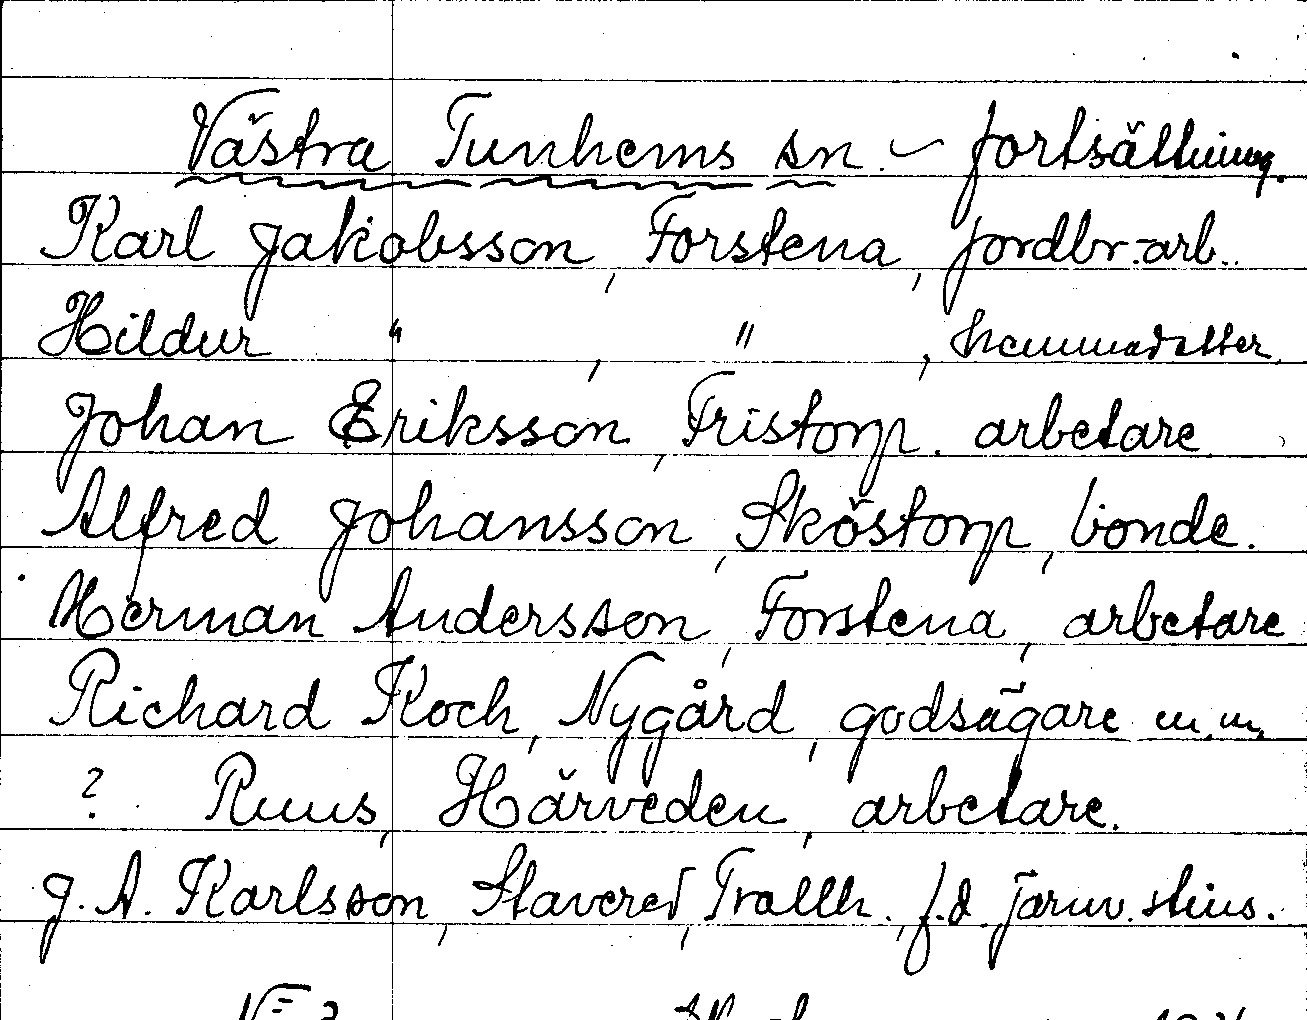 Västra Tunhems sn. – fortsättning.
Karl Jakobsson, Forstena, jordbr.-arb.
Hildur " , " , hemmadotter.
Johan Eriksson, Fristorp. arbetare
Alfred Johansson, Sköstorp, bonde.
Herman Andersson, Forstena, arbetare
Richard Koch, Nygård, godsägare m.m.
? Ruus, Härveden, arbetare.
J. A. Karlsson, Stavered, Trollh., f.d. järnv.